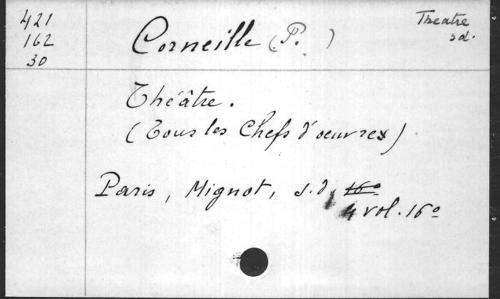 421
162
30
Corneille (P. )
Theatre
sd.
Théâtre.
(Tous les Chefs d'oeuvres)
Paris, Mignot, s.d, 16º
4 vol. 16º